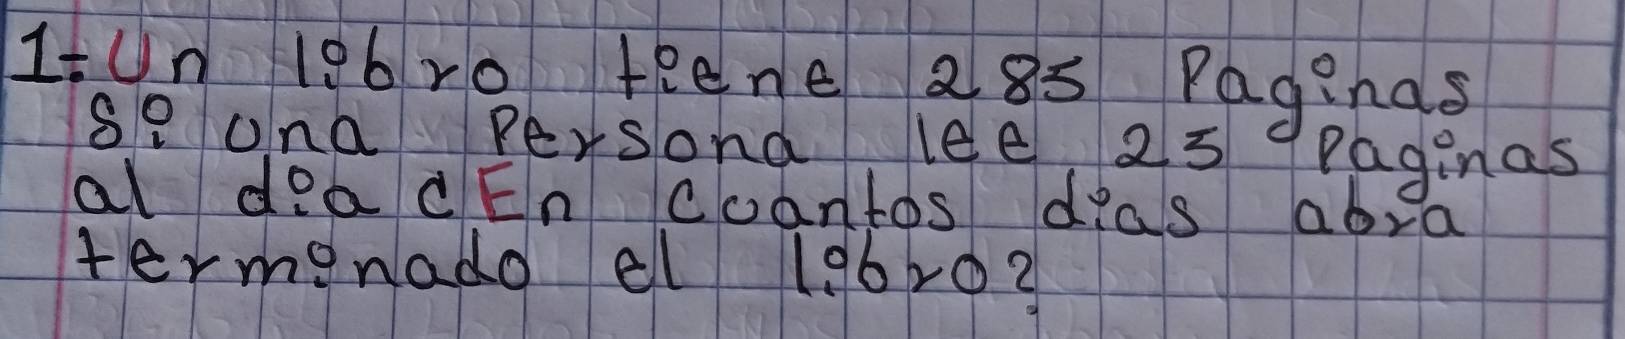 1-Un libro tiene 285 Paginas
Si una Persona lee 25 Paginas
al dia ¿En cuantos dias abra
terminado el libro?